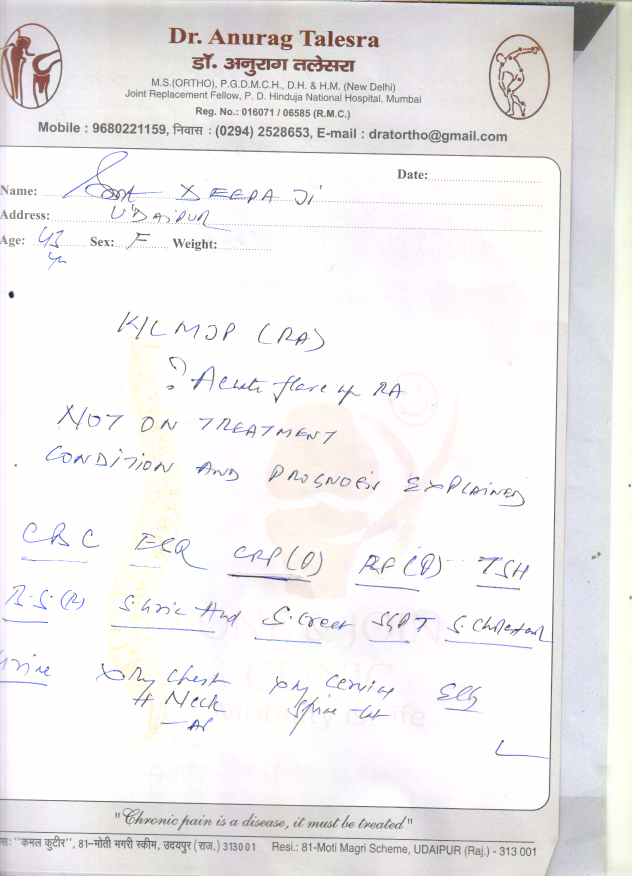 Dr. Anurag Talesra
डॉ. अनुराग तलेसरा
M.S.(ORTHO), P.G.D.M.C.H., D.H. & H.M. (New Delhi)
Joint Replacement Fellow, P. D. Hinduja National Hospital, Mumbai
Reg. No.: 016071 / 06585 (R.M.C.)
Mobile : 9680221159, निवास : (0294) 2528653, E-mail : dratortho@gmail.com
Date:
Name: DEEPA Ji
Address: UDAIPUR
Age: 43 yr Sex: F Weight:
K/C MJP (RA)
? Acute flare up RA
NOT ON TREATMENT
CONDITION AND PROGNOSIS EXPLAINED
CBC ESR CRP(Q) RF(Q) TSH
B.S.(R) S.Uric Acid S.Creat SGPT S.Cholesterol
Urine X Ray Chest X Ray Cervical ECG
Neck Spine - Lat
- AP
CLINIC
Mobility is Life
"Chronic pain is a disease, it must be treated"
"कमल कुटीर", 81-मोती मगरी स्कीम, उदयपुर (राज.) 313001 Resi.: 81-Moti Magri Scheme, UDAIPUR (Raj.) - 313 001